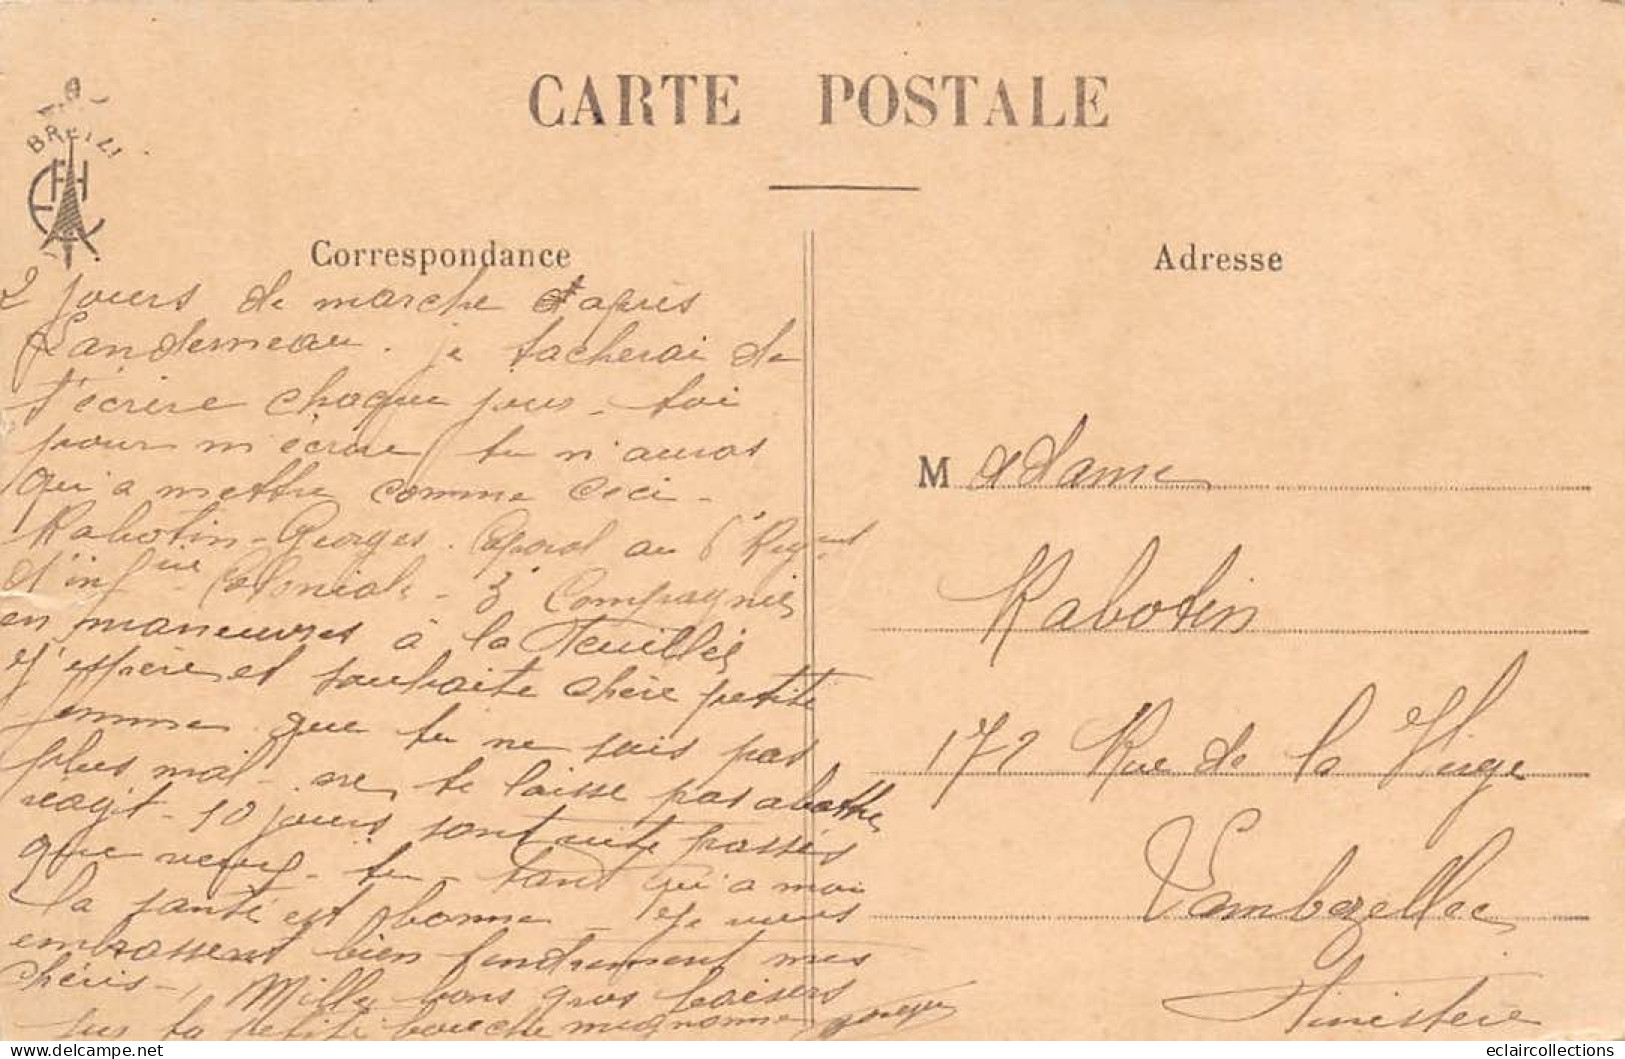 CARTE POSTALE
BREIZ
Correspondance
Adresse
2 jours de marche d'après
Landerneau. je tacherai de
t'écrire chaque jour - toi
pour m'écrire tu n'auras
qu'a mettre comme ceci -
Rabotin - Georges. Caporal au 6e Regment
d'infrie Coloniale - 3e Compagnie
en manœuvres à la Feuillée
J'espère et souhaite chère petite
femme que tu ne sois pas
plus mal - ne te laisse pas abattre
reagit - 10 jours sont vite passés
que veux - tu - tant qu'a moi
la santé est bonne - Je vous
embrassent bien tendrement mes
chéris -, Mille bons gros baisers
sur ta petite bouche mignonne Georges
Madame
Rabotin
172 Rue de la Vierge
Lambezellec
Finistère
eclaircollections